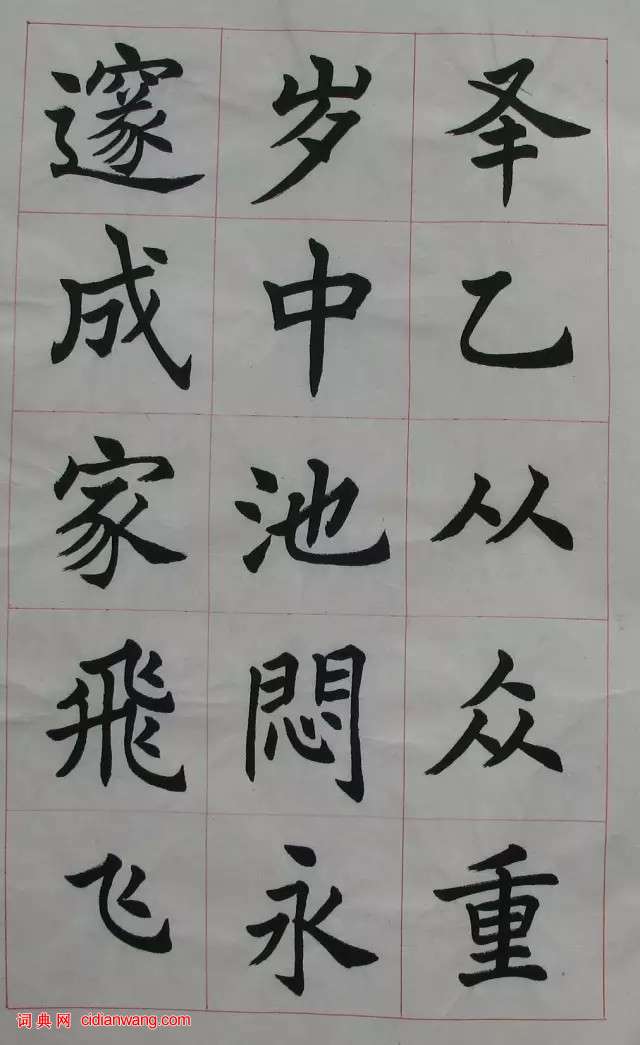 𠬤乙从众重
岁中池悶永
邃成家飛飞
词典网 cidianwang.com